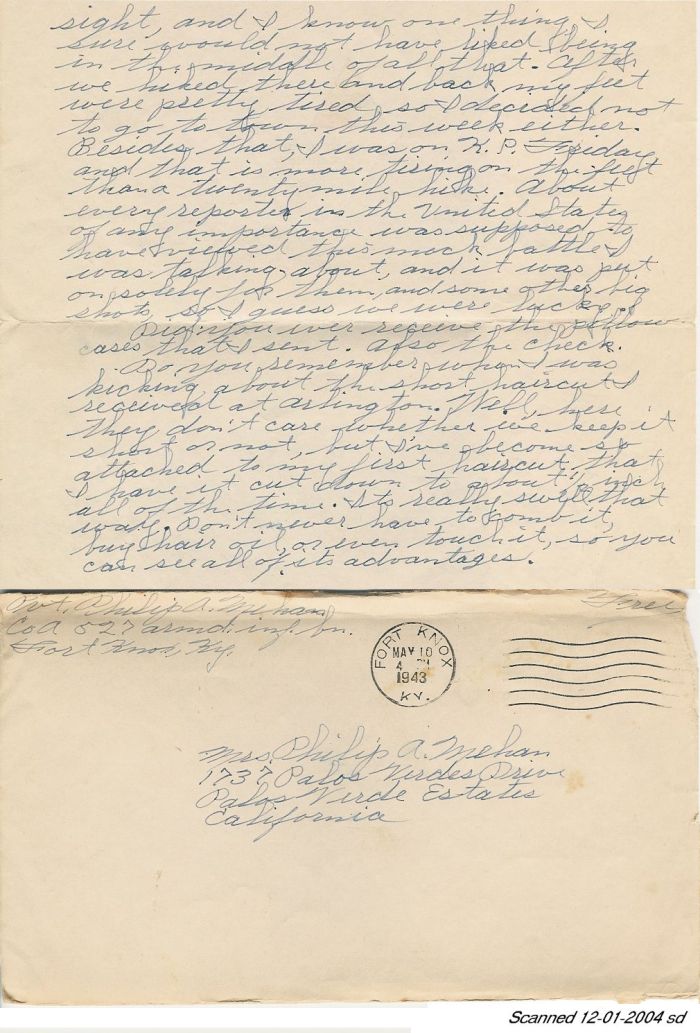 sight, and I know one thing I
sure would not have liked being
in the middle of all that. After
we hiked there and back my feet
were pretty tired so I decided not
to go to town this week either.
Besides that, I was on K.P. Friday
and that is more tiring on the feet
than a twenty mile hike. About
every reporter in the United States
of any importance was supposed to
have viewed this mock battle I
was talking about, and it was put
on solely for them, and some other big
shots, so I guess we were lucky.
Did you ever receive the pillow
cases that I sent. Also the check.
Do you remember when I was
kicking about the short haircut I
received at Arlington. Well, here
they don't care whether we keep it
short or not, but I've become so
attached to my first haircut, that
I have it cut down to about inch
all of the time. It's really swell that
way. Don't never have to comb it,
buy hair oil, or even touch it, so you
can see all of its advantages.
Pvt. Philip A. Mehan
Co A 527 armd. inf. bn.
Fort Knox, Ky.
Free
FORT KNOX
MAY 10
4 PM
1943
KY.
Mrs. Philip A. Mehan
1737 Palos Verdes Drive
Palos Verde Estates
California
Scanned 12-01-2004 sd